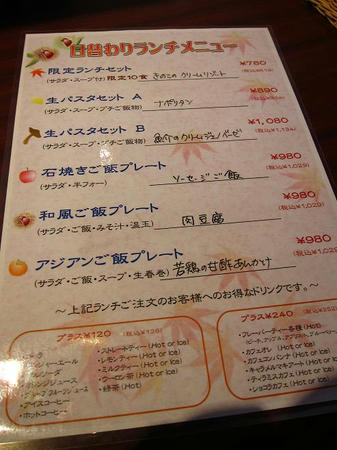 日替わりランチメニュー
限定ランチセット ¥780
(サラダ・スープ付) 限定10食 きのこのクリームリゾット
生パスタセット A ¥890
(サラダ・スープ・プチご飯物) ナポリタン
生パスタセット B ¥1,080
(サラダ・スープ・プチご飯物) 魚介のクリームジェノベーゼ (税込¥1,134)
石焼きご飯プレート ¥980
(サラダ・半フォー) ソーセージご飯 (税込¥1,029)
和風ご飯プレート ¥980
(サラダ・ご飯・みそ汁・温玉) 肉豆腐 (税込¥1,029)
アジアンご飯プレート ¥980
(サラダ・ご飯・スープ・生春巻) 若鶏の甘酢あんかけ (税込¥1,029)
～上記ランチご注文のお客様へのお得なドリンクです。～
プラス¥120 (税込¥126)
コーラ
ジンジャーエール
オレンジジュース
グレープフルーツジュース
アイスコーヒー
ホットコーヒー
ストレートティー(Hot or Ice)
レモンティー(Hot or Ice)
ミルクティー(Hot or Ice)
ウーロン茶(Hot or Ice)
緑茶(Hot)
プラス¥240 (税込¥252)
フレーバーティー各種(Hot)
カフェオレ (Hot or Ice)
カフェコンパンナ (Hot or Ice)
キャラメルマキアート(Hot or Ice)
ティラミスカフェ(Hot or Ice)
ショコラカフェ(Hot or Ice)